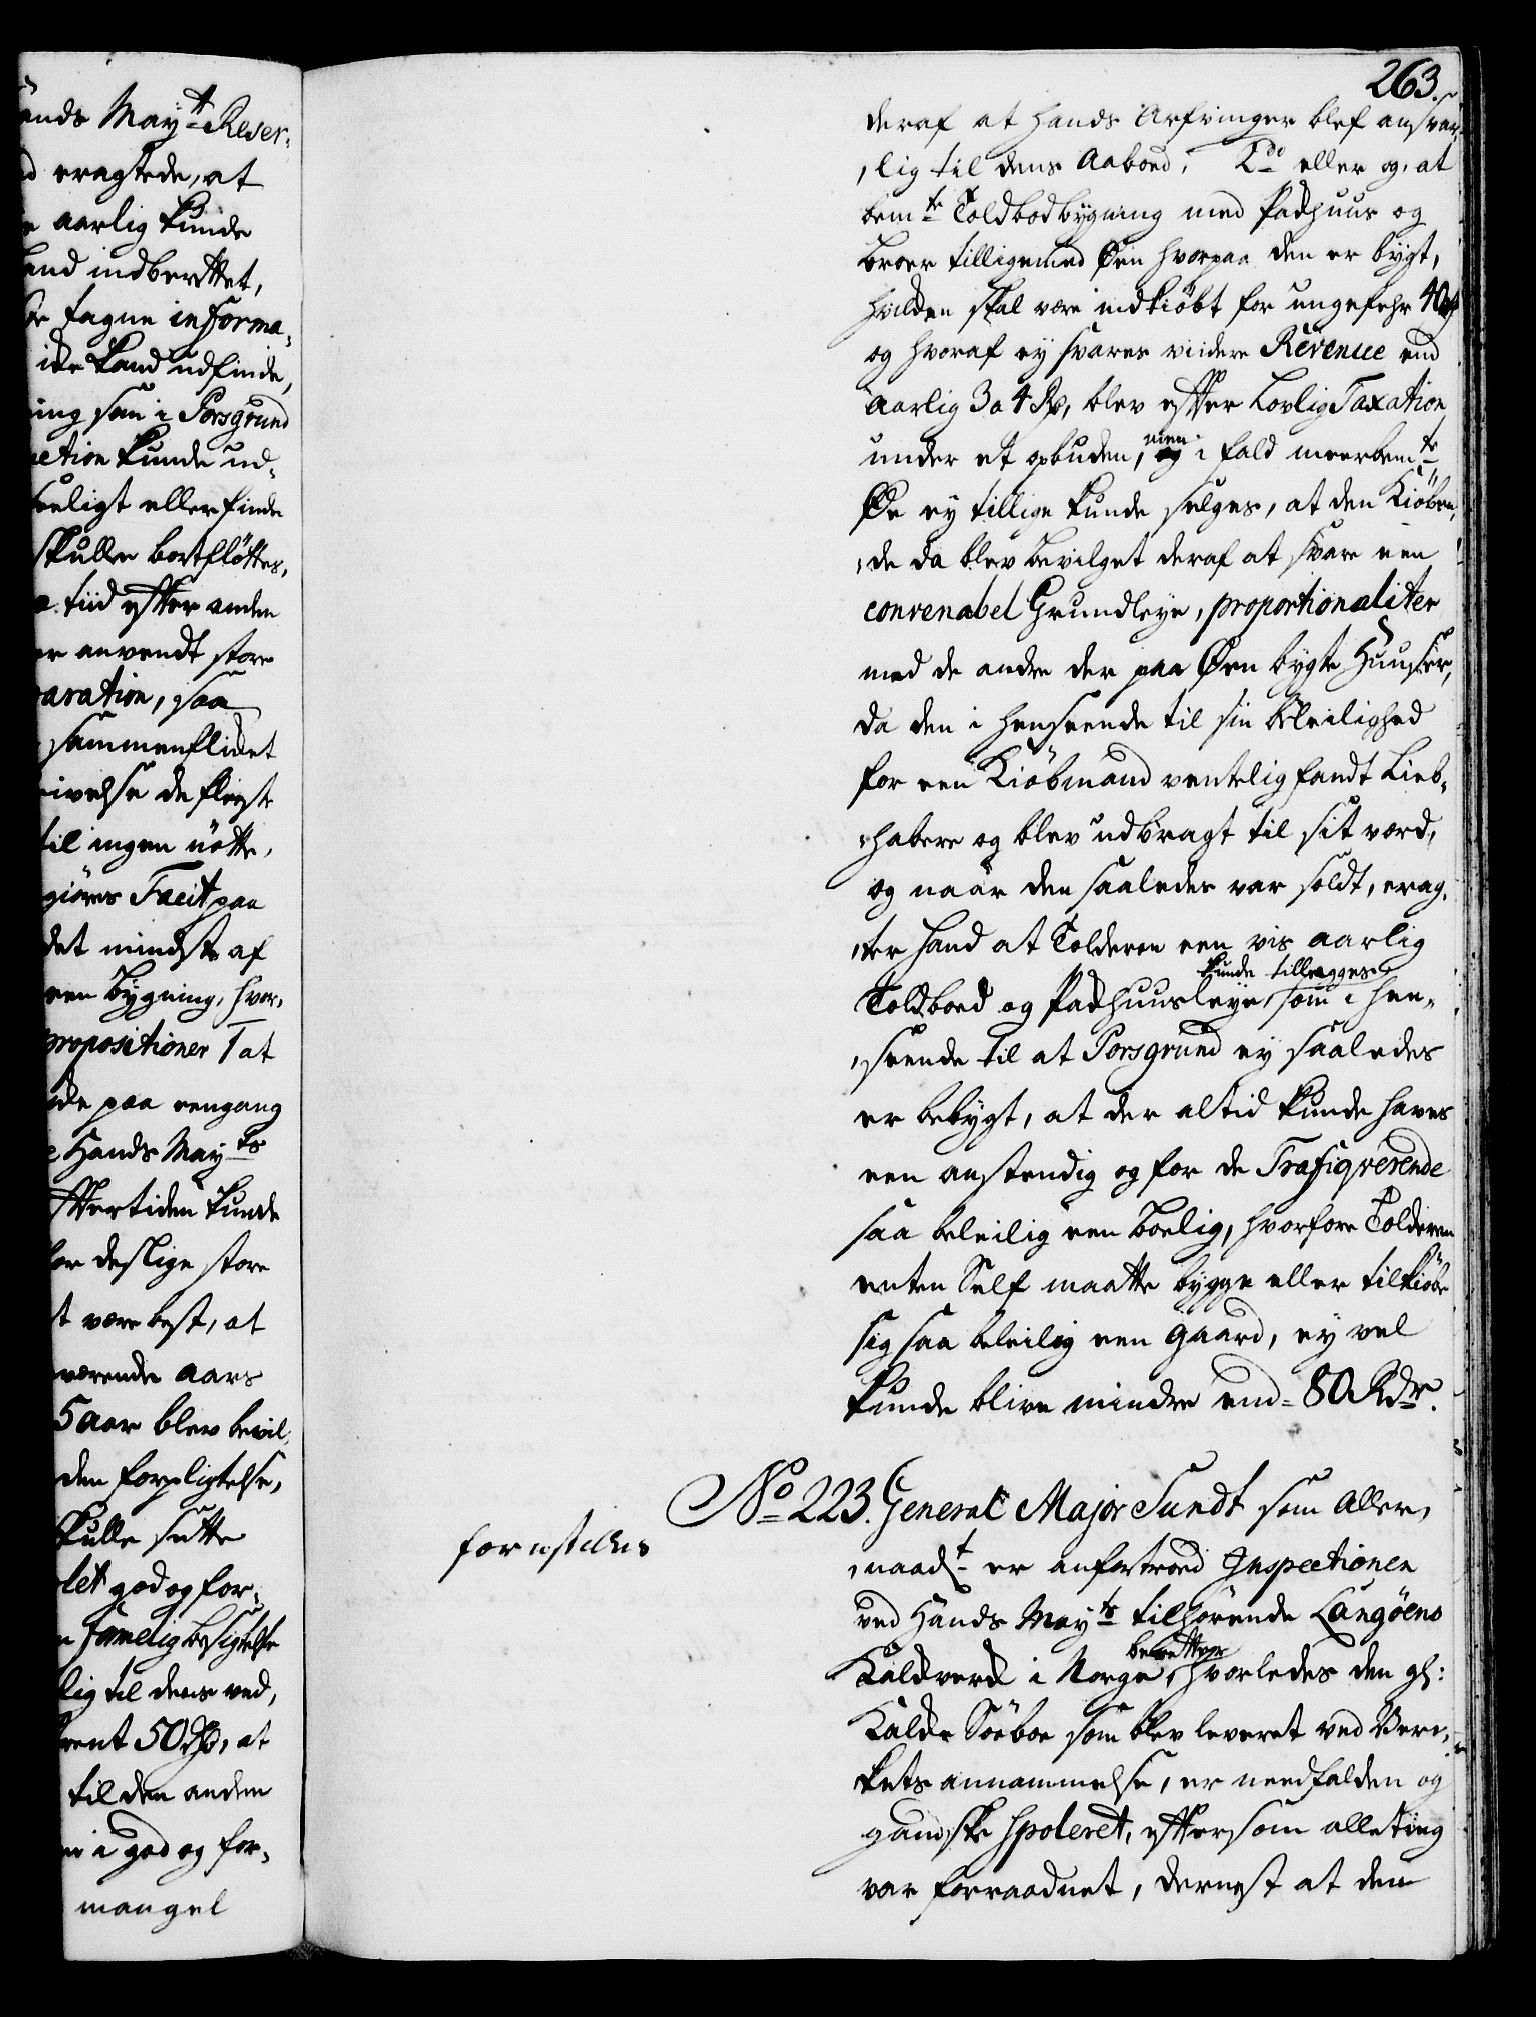 ands Mayt Reser-
d eragtede, at
e aarlig kunde
hand indberettet,
tagne informa-
ikke kand udfinde,
ing som i Porsgrund
action kunde ud-
seeligt eller finde
skulle bortfløttes,
tiid efter anden
er anvendt store
paration, saa
sammenflicket
ivelse de fleeste
til ingen nøtte,
giøres Facit paa
det mindste af
een bygning, hvor,
propositioner 1 at
de paa eengang
e Hands Mayts
eftertiden kunde
for deslige store
t være best, at
værende aars
5 aar blev bevil,
den forpligtelse,
skulle sætte
let god og for-
n samelig besigtelse
lig til dens ved,
rent 50 rdr, at
til den anden
n i god og for-
mangel
263.
deraf at hands Arfvinger blef ansvar,
,lig til dens Aaboed, 2do eller og, at
bemte Toldbodbygning med Padhuus og
broer tilligemed Øen hvorpaa den er bygt,
hvilken skal være indkiøbt for ungefehr 40 rdr
og hvoraf ey svares viidere Revenue end
Aarlig 3 a 4 Rdr, blev efter Lovlig Taxation
under et opbuden, men i fald meerbemte
Øe ey tillige kunde selges, at den Kiøben,
,de da blev bevilget deraf at svare een
convenabel Grundleye, proportionaliter
med de andre der paa Øen bygte Huuser,
da den i henseende til sin beleilighed
for een Kiøbmand ventelig fandt Lieb,
,habere og blev udbragt til sit værd,
og naar den saaledes var soldt, erag,
,ter hand at Tolderen een vis aarlig
kunde tillegges
Toldboed og Padhuusleye, som i hen,
,seende til at Porsgrund ey saaledes
er bebygt, at der altid kunde haves
een anstendig og for de Trafiqverende
saa beleilig een boelig, hvorfore Tolderen
enten Self maatte bygge eller tilkiøbe
sig saa beleilig een Gaard, ey vel
kunde blive mindre end 80 Rdr.
No 223. General Major Sundt som Aller,
forestilles
,naadt er anfortroed Inspectionen
ved Hands Mayts tilhørende Langøens
beretter
Kaldverk i Norge, hvorledes den gl:
Kalde Søeboe som blev leveret ved Ver-
kets annammelse, er needfalden og
gandske spoleret, eftersom alleting
var forraadnet, dernest at den